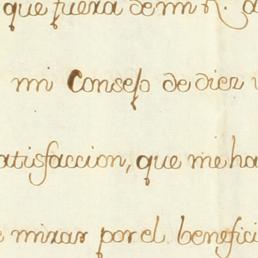 que fuera de mi R.
mi Consejo de diez
atisfaccion, que me ha
mirar por el benefici